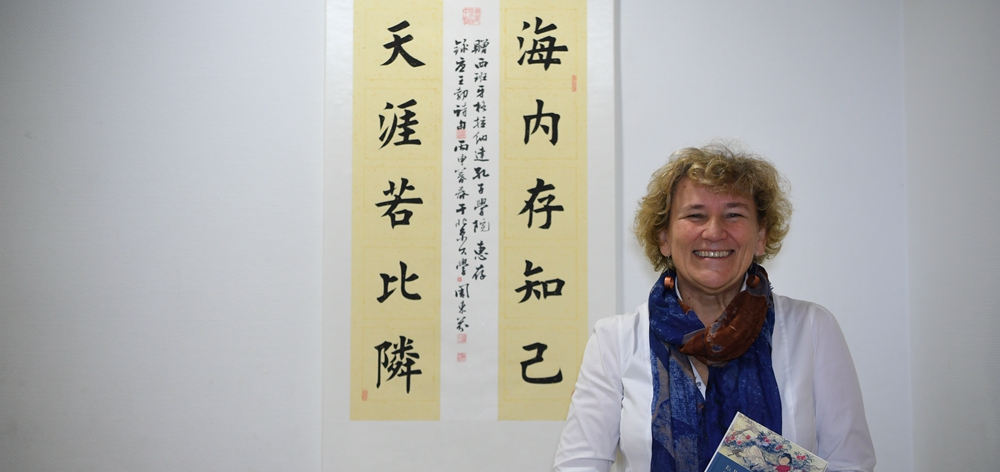 海内存知己
赠西班牙格拉纳达孔子学院惠存
录唐王勃诗句 丙申暮春于北京大學
天涯若比隣